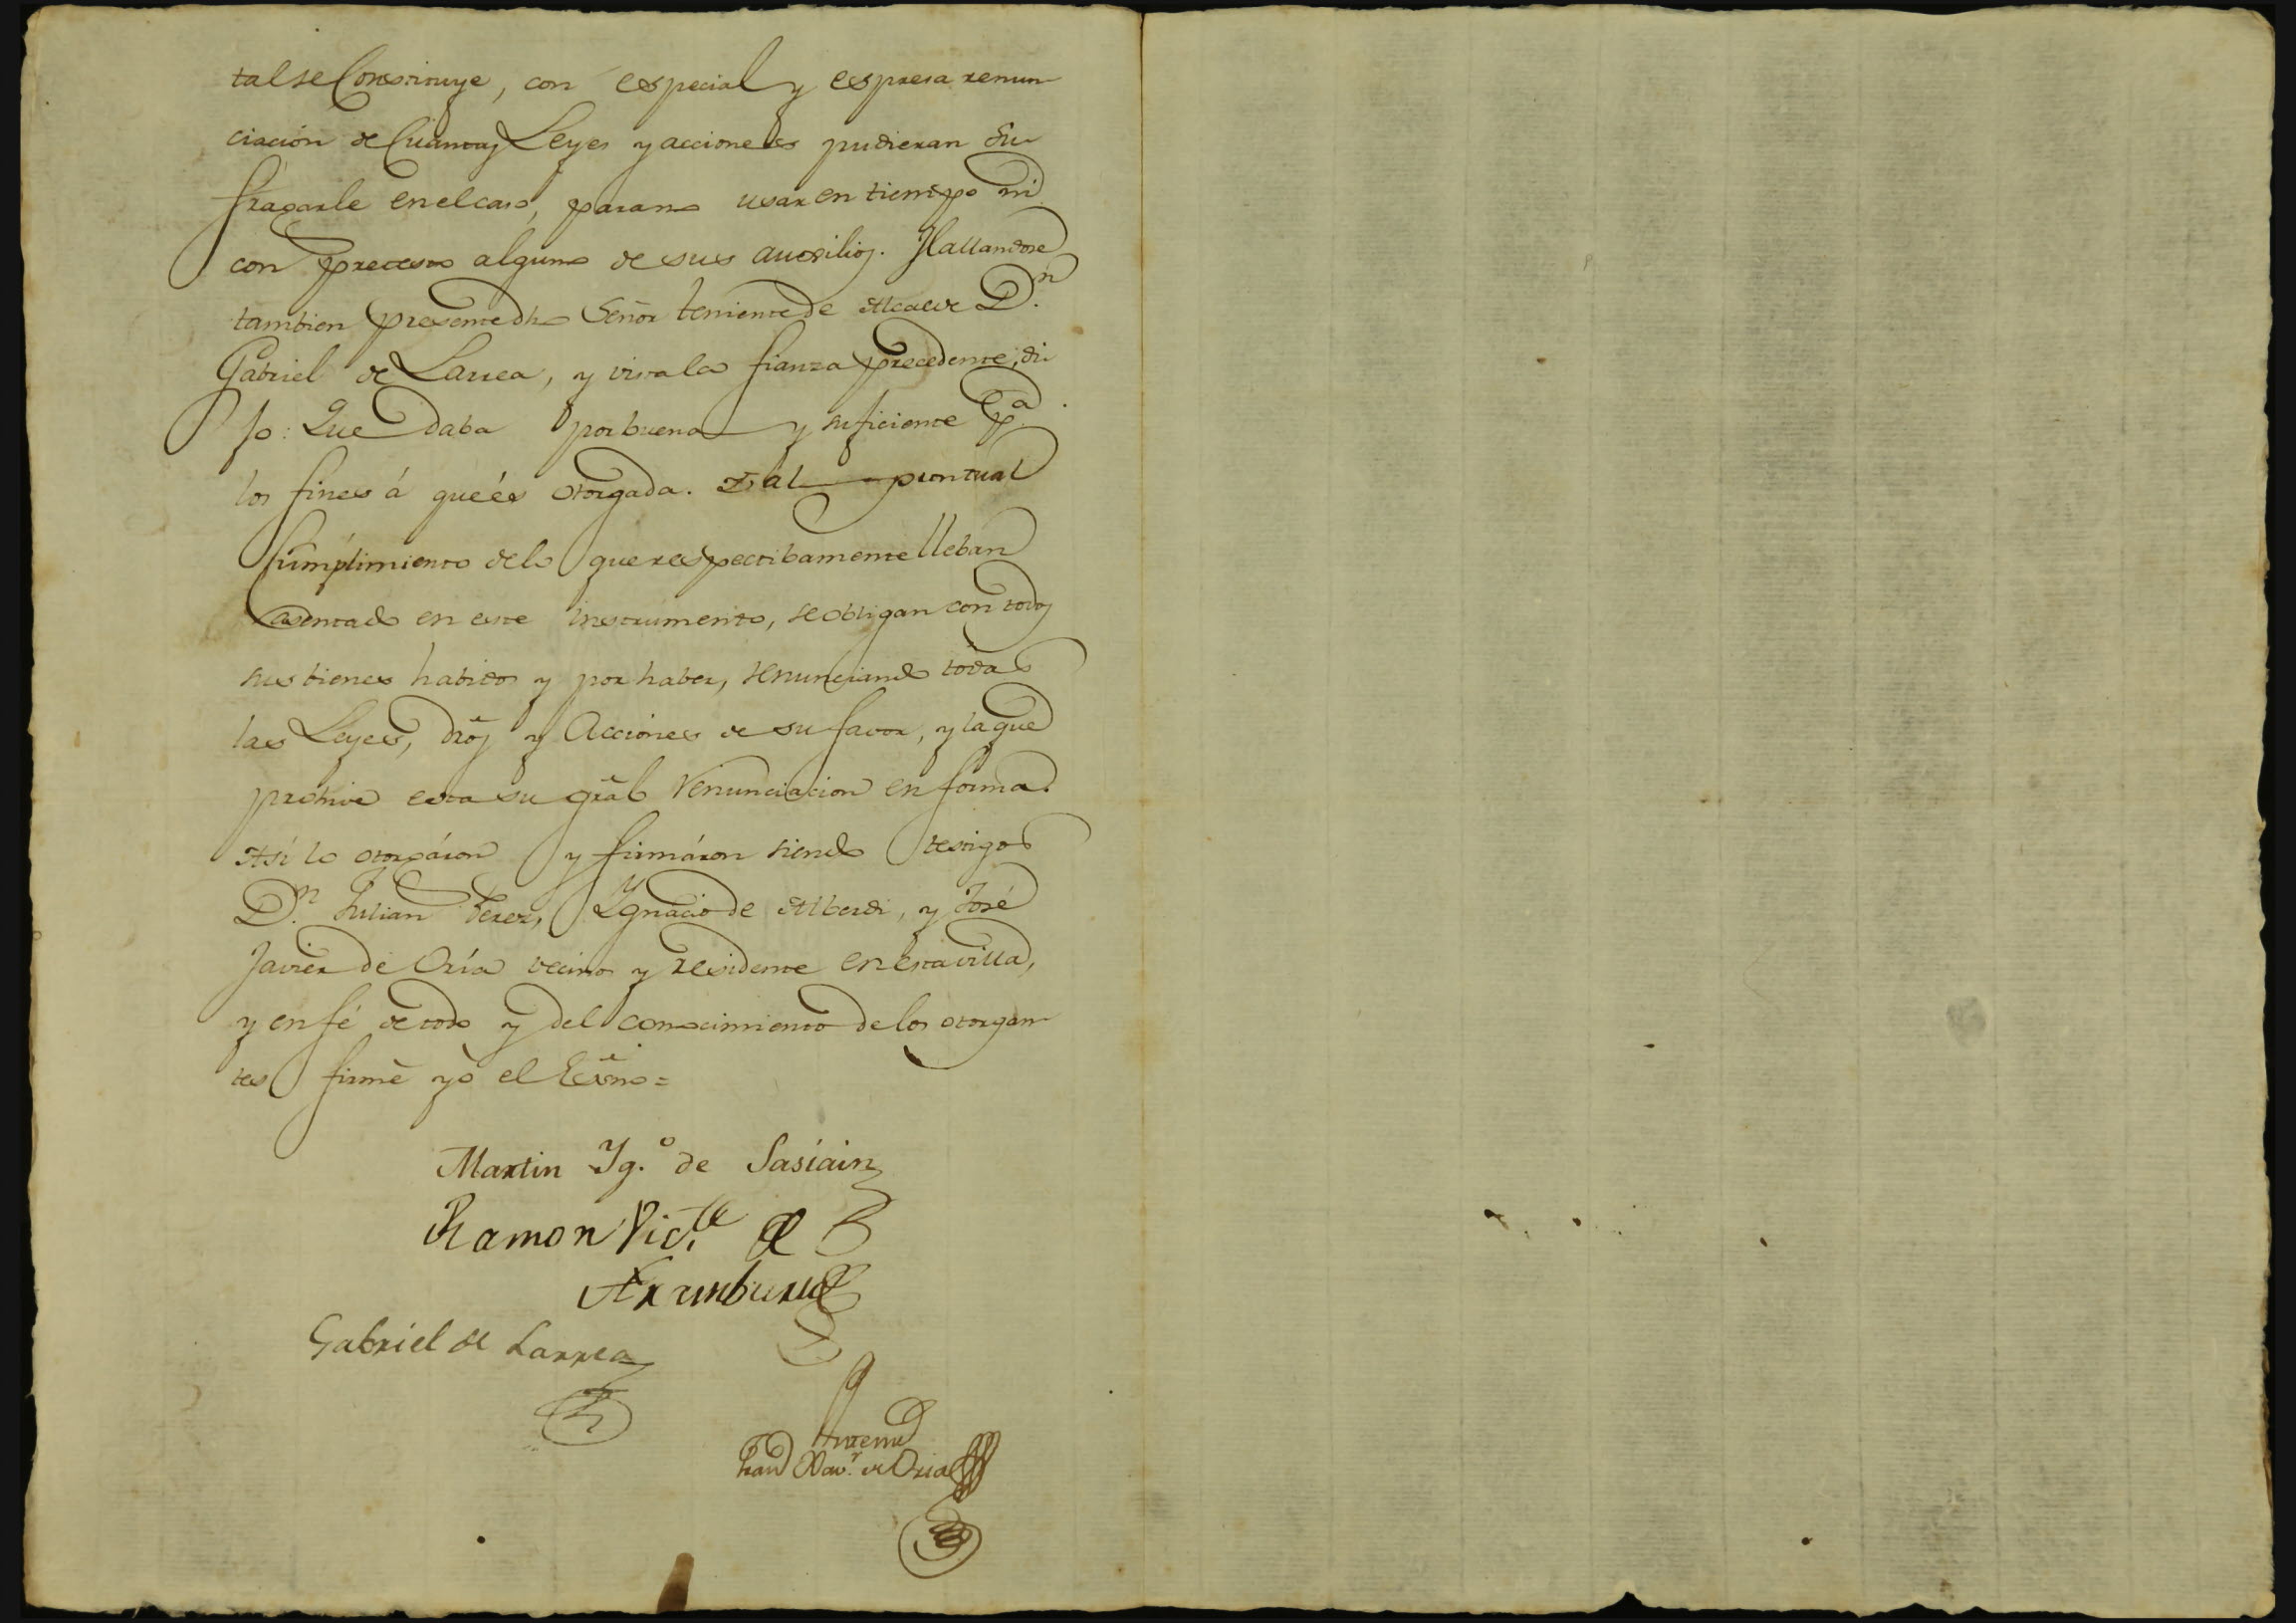 tal se Constituye, con especial y espresa renun
ciación de Cuantas Leyes y acciones pudieran su
fragarle en el caso, para no usar en tiempo ni
con pretesto alguno de sus auxilios. Hallandose
tambien presente dho Señor teniente de Alcalde D.n
Gabriel de Larrea, y vista la fianza precedente, di
jo: Que daba por buena y suficiente p.a
los fines á que és otorgada. Y al puntual
Cumplimiento de lo que respectibamente lleban
asentado en este instrumento, se obligan con todos
sus bienes habidos y por haber, renunciando todas
las Leyes, dros y Acciones de su favor, y la que
prohive esta su gral renunciacion en forma.
Así lo otorgáron y firmáron siendo testigos
D.n Julian Perez, Ygnacio de Alberdi, y José
Javier de Oría vecinos y residente en esta villa,
y en fé de todo y del conocimiento de los otorgan
tes firmé yo el Esno=
Martin Yg.o de Sasiain
Ramon Vic.te de
Aramburu
Gabriel de Larrea
Antemi
Juan Xav.r de Oria